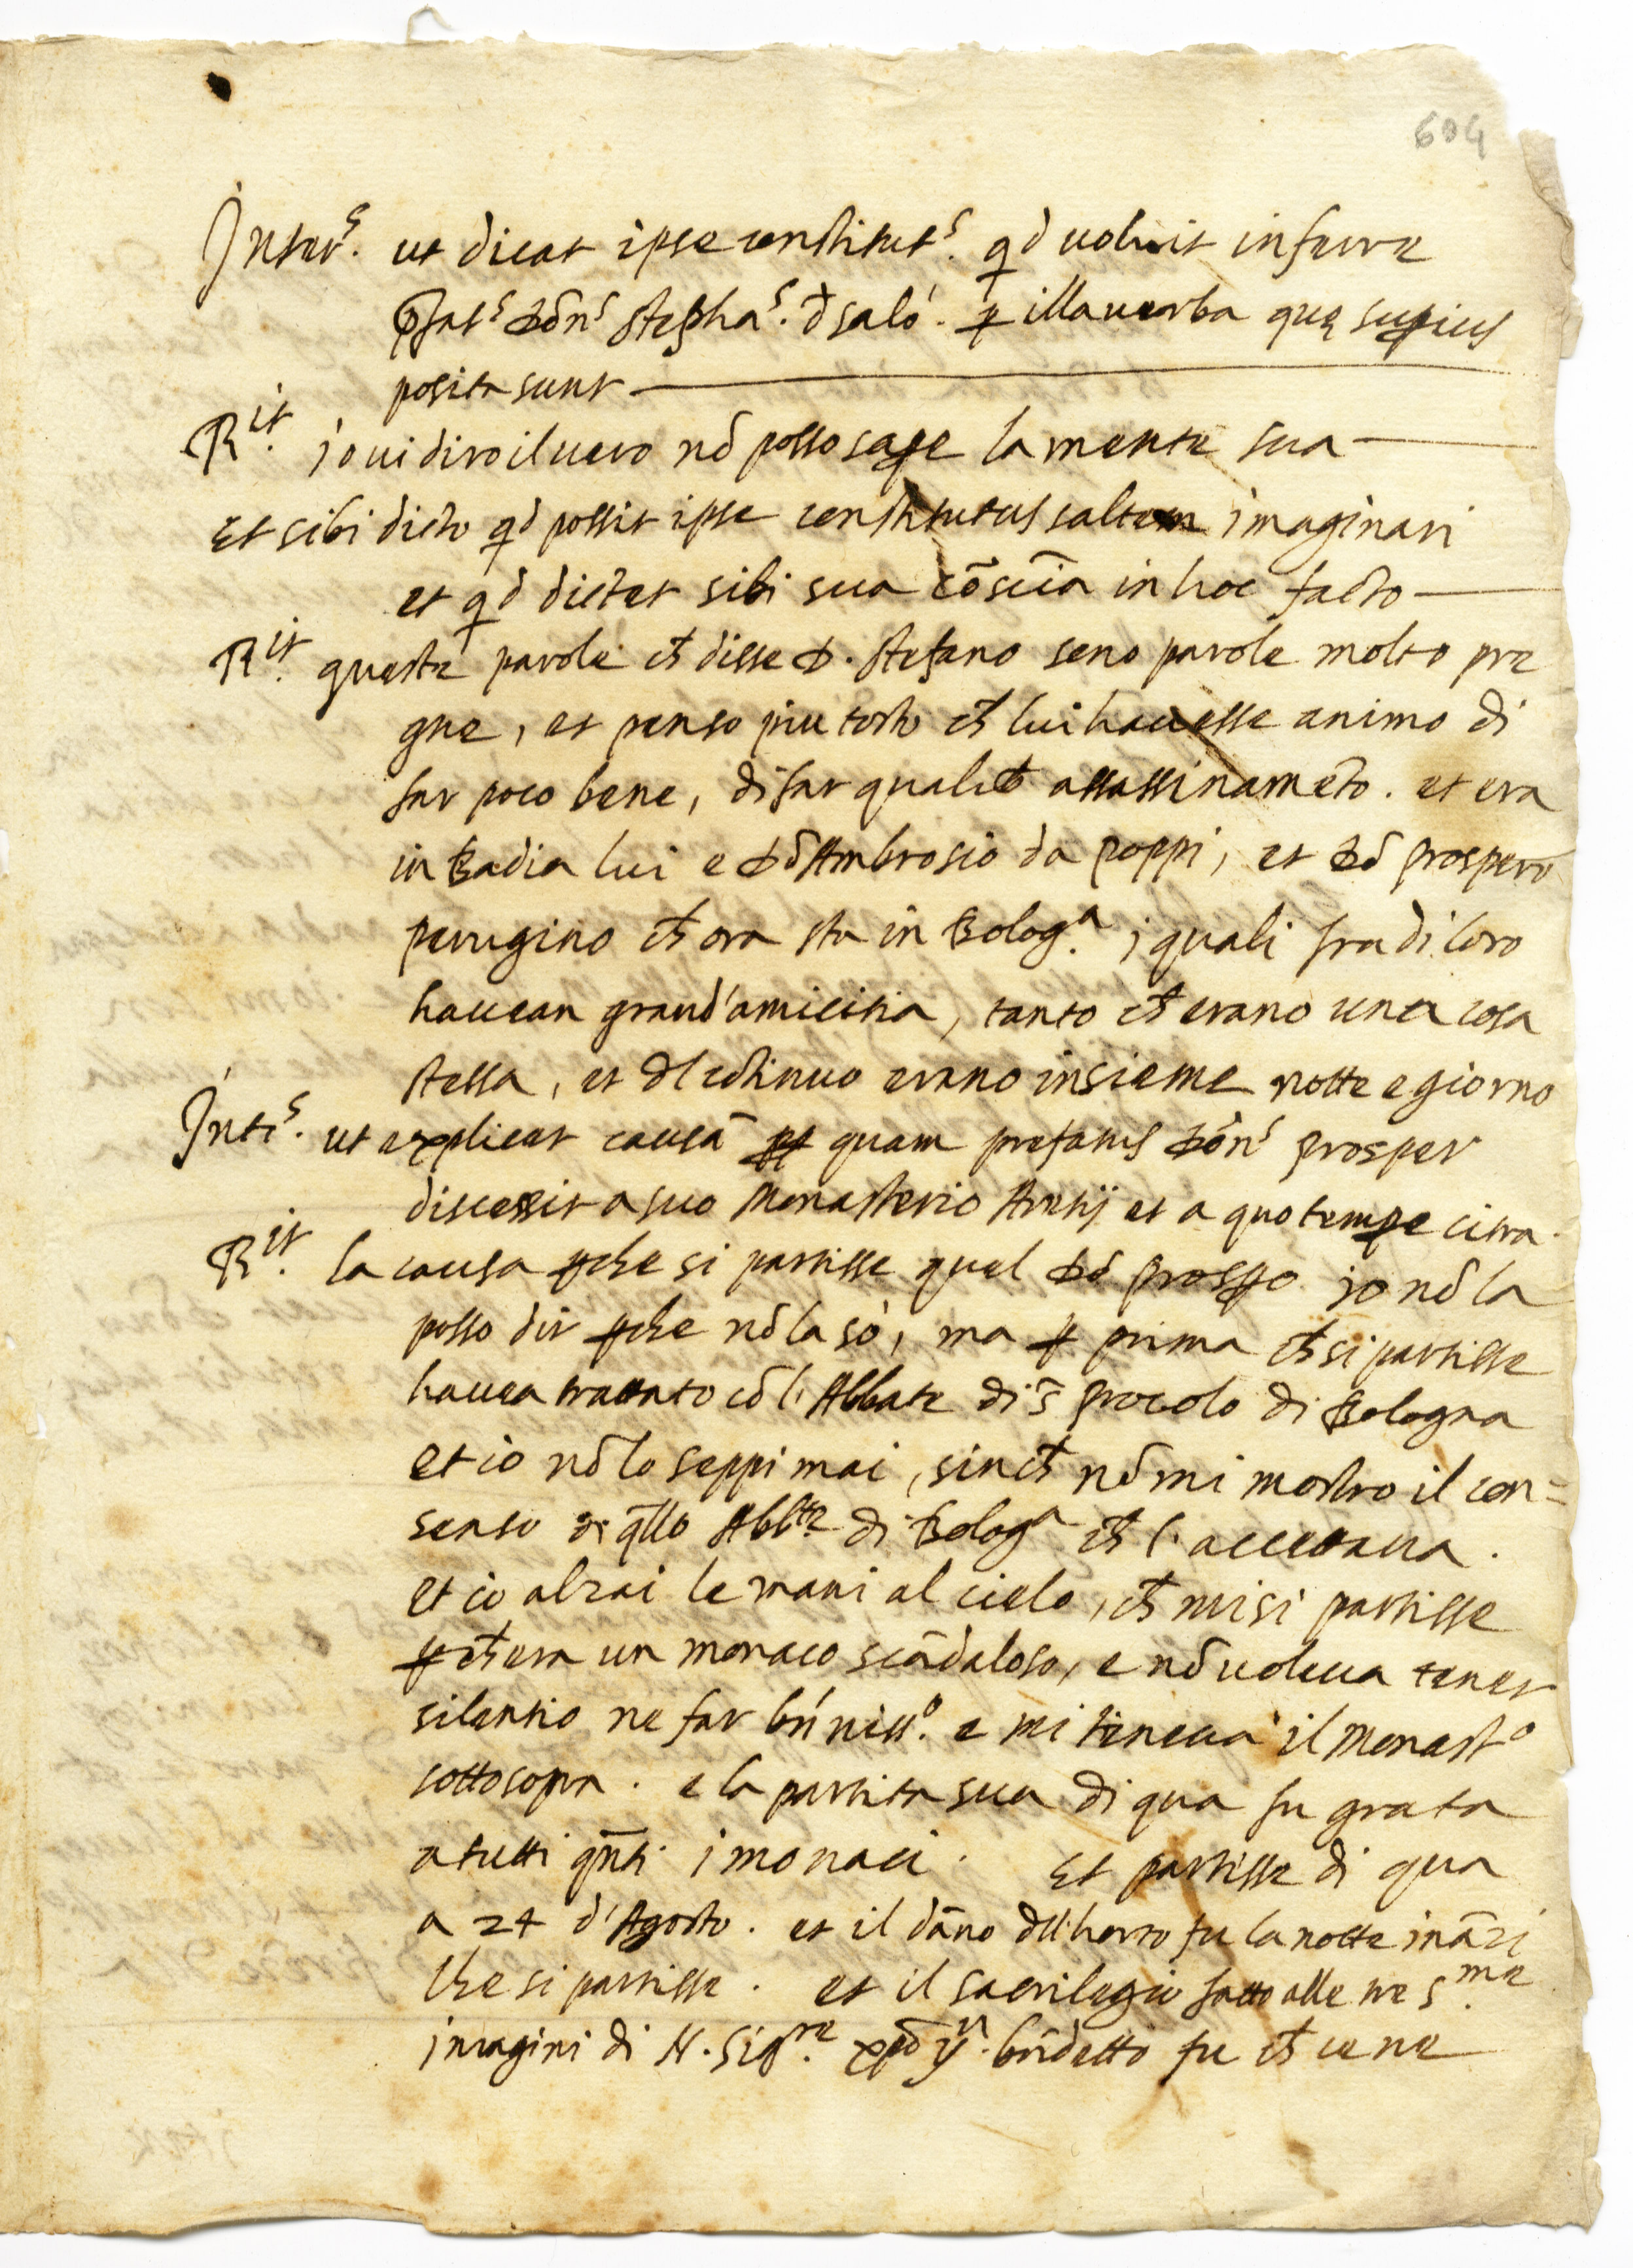 604
Inter.^s ut dicat ipse constitut.^s q̃d uoluit inferre
p̃fat^s Dõn^s Stepha.^s d̃ salò. ꝑ illa uerba quę suꝑius
posita sunt
R.^it io ui diro il uero nõ posso saꝑe la mente sua
Et sibi dicto q̃d possit ipse constitutus saltem imaginari
et q̃d dictet sibi sua cõsciã in hoc facto
R.^it queste parole ch̃ disse D. Stefano sono parole molto pre
gne, et penso piu tosto ch̃ lui hauesse animo di
far poco bene, di far qualch̃ assassinamẽto. et era
in Badia lui e Dõ Ambrosio da poppi, et Dõ prospero
perugino ch̃ ora sta in Bolog.^a i quali fra di loro
hauean grand'amicitia, tanto ch̃ erano una cosa
stessa, et dl cõtinuo erano insieme notte e giorno
Inte.^s ut explicet causã ꝑ quam prefatus Dõn^s prosper
discessit a suo Monasterio Aretij et a quo tempꝑe citra.
R.^it la causa ꝑche si partisse quel Dõ prosꝑo io nõ la
posso dir ꝑche nõ la sò, ma ꝑ prima ch̃ si partisse
hauea trattato cõ l'Abbate di s̃ Procolo di Bologna
et io nõ lo seppi mai, sin ch̃ nõ mi mostro il con=
senso di q̃llo Abb^te di Bolog^a ch̃ l'accettaua.
et io alzai le mani al cielo, ch̃ mi si partisse
ꝑch̃ era un monaco scãdaloso, e nõ uoleua tener
silentio ne far bń niss.^o e mi teneua il Monast^o
sottosopra. e la partita sua di qua fu grata
a tutti q̃nti i monaci. Et partisse di qua
a 24 d'Agosto. et il dãno dll'horto fu la notte inãzi
che si partisse. et il sacrilegio fatto alle tre s.^me
imagini di N. Sig.^re xp̃o y.^u bñdetto fu ch̃ uene